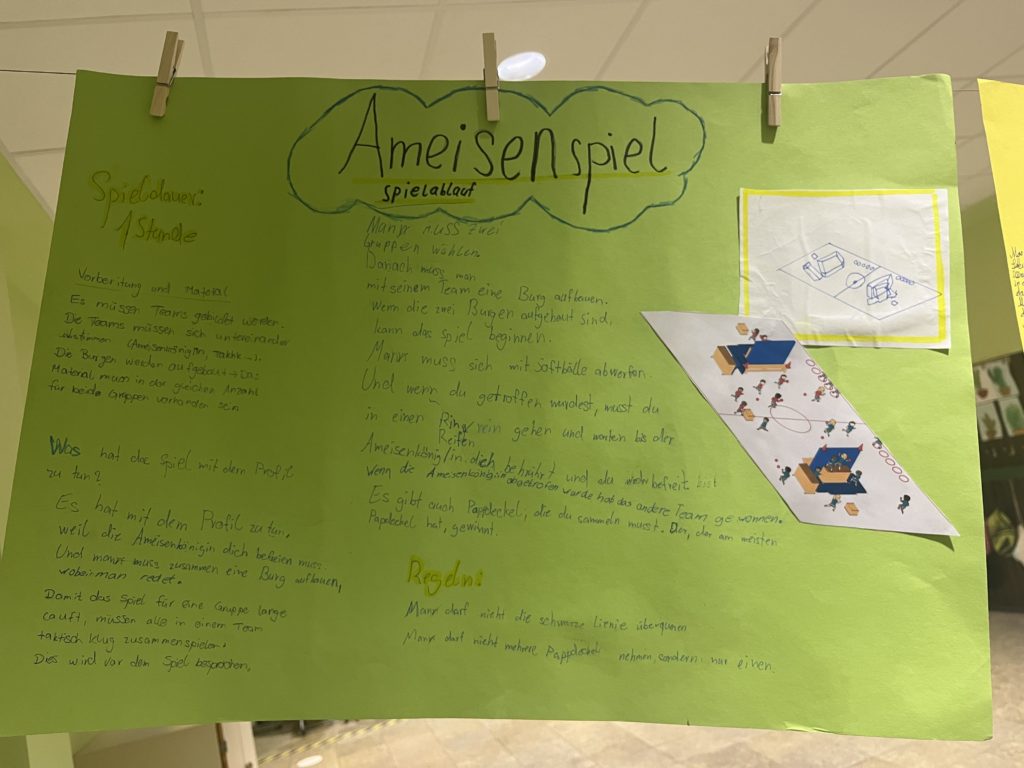 Ameisenspiel
spielablauf
Spieldauer:
1 Stunde
Vorberitung und Material
Es müssen Teams gebildet werden.
Die Teams müssen sich untereinander
abstimmen (Ameisenkönigin, Taktik ...).
Die Burgen werden aufgebaut → Das
Material muss in der gleichen Anzahl
für beide Gruppen vorhanden sein
Was hat das Spiel mit dem Profil
zu tun?
Es hat mit dem Profil zu tun,
weil die Ameisenkönigin dich befreien muss.
Und mann muss zusammen eine Burg aufbauen,
wobei man redet.
Damit das Spiel für eine Gruppe lange
läuft, müssen alle in einem Team
taktisch klug zusammenspielen.
Dies wird vor dem Spiel besprochen.
Mann muss zwei
Gruppen wählen.
Danach muss man
mit seinem Team eine Burg aufbauen.
Wenn die zwei Burgen aufgebaut sind,
kann das Spiel beginnen.
Mann muss sich mit Softbälle abwerfen.
Und wenn du getroffen wurdest, musst du
in einen Ring/Reifen rein gehen und warten bis der
Ameisenkönig/in dich berührt und du wieder befreit bist
Wenn die Ameisenkönigin abgetrofen wurde hat das andere Team gewonnen.
Es gibt auch Pappdeckel, die du sammeln musst. Der, der am meisten
Pappdeckel hat, gewinnt.
Regeln:
Mann darf nicht die schwarze Lienie überqueren
Mann darf nicht mehrere Pappdeckel nehmen, sondern nur einen.